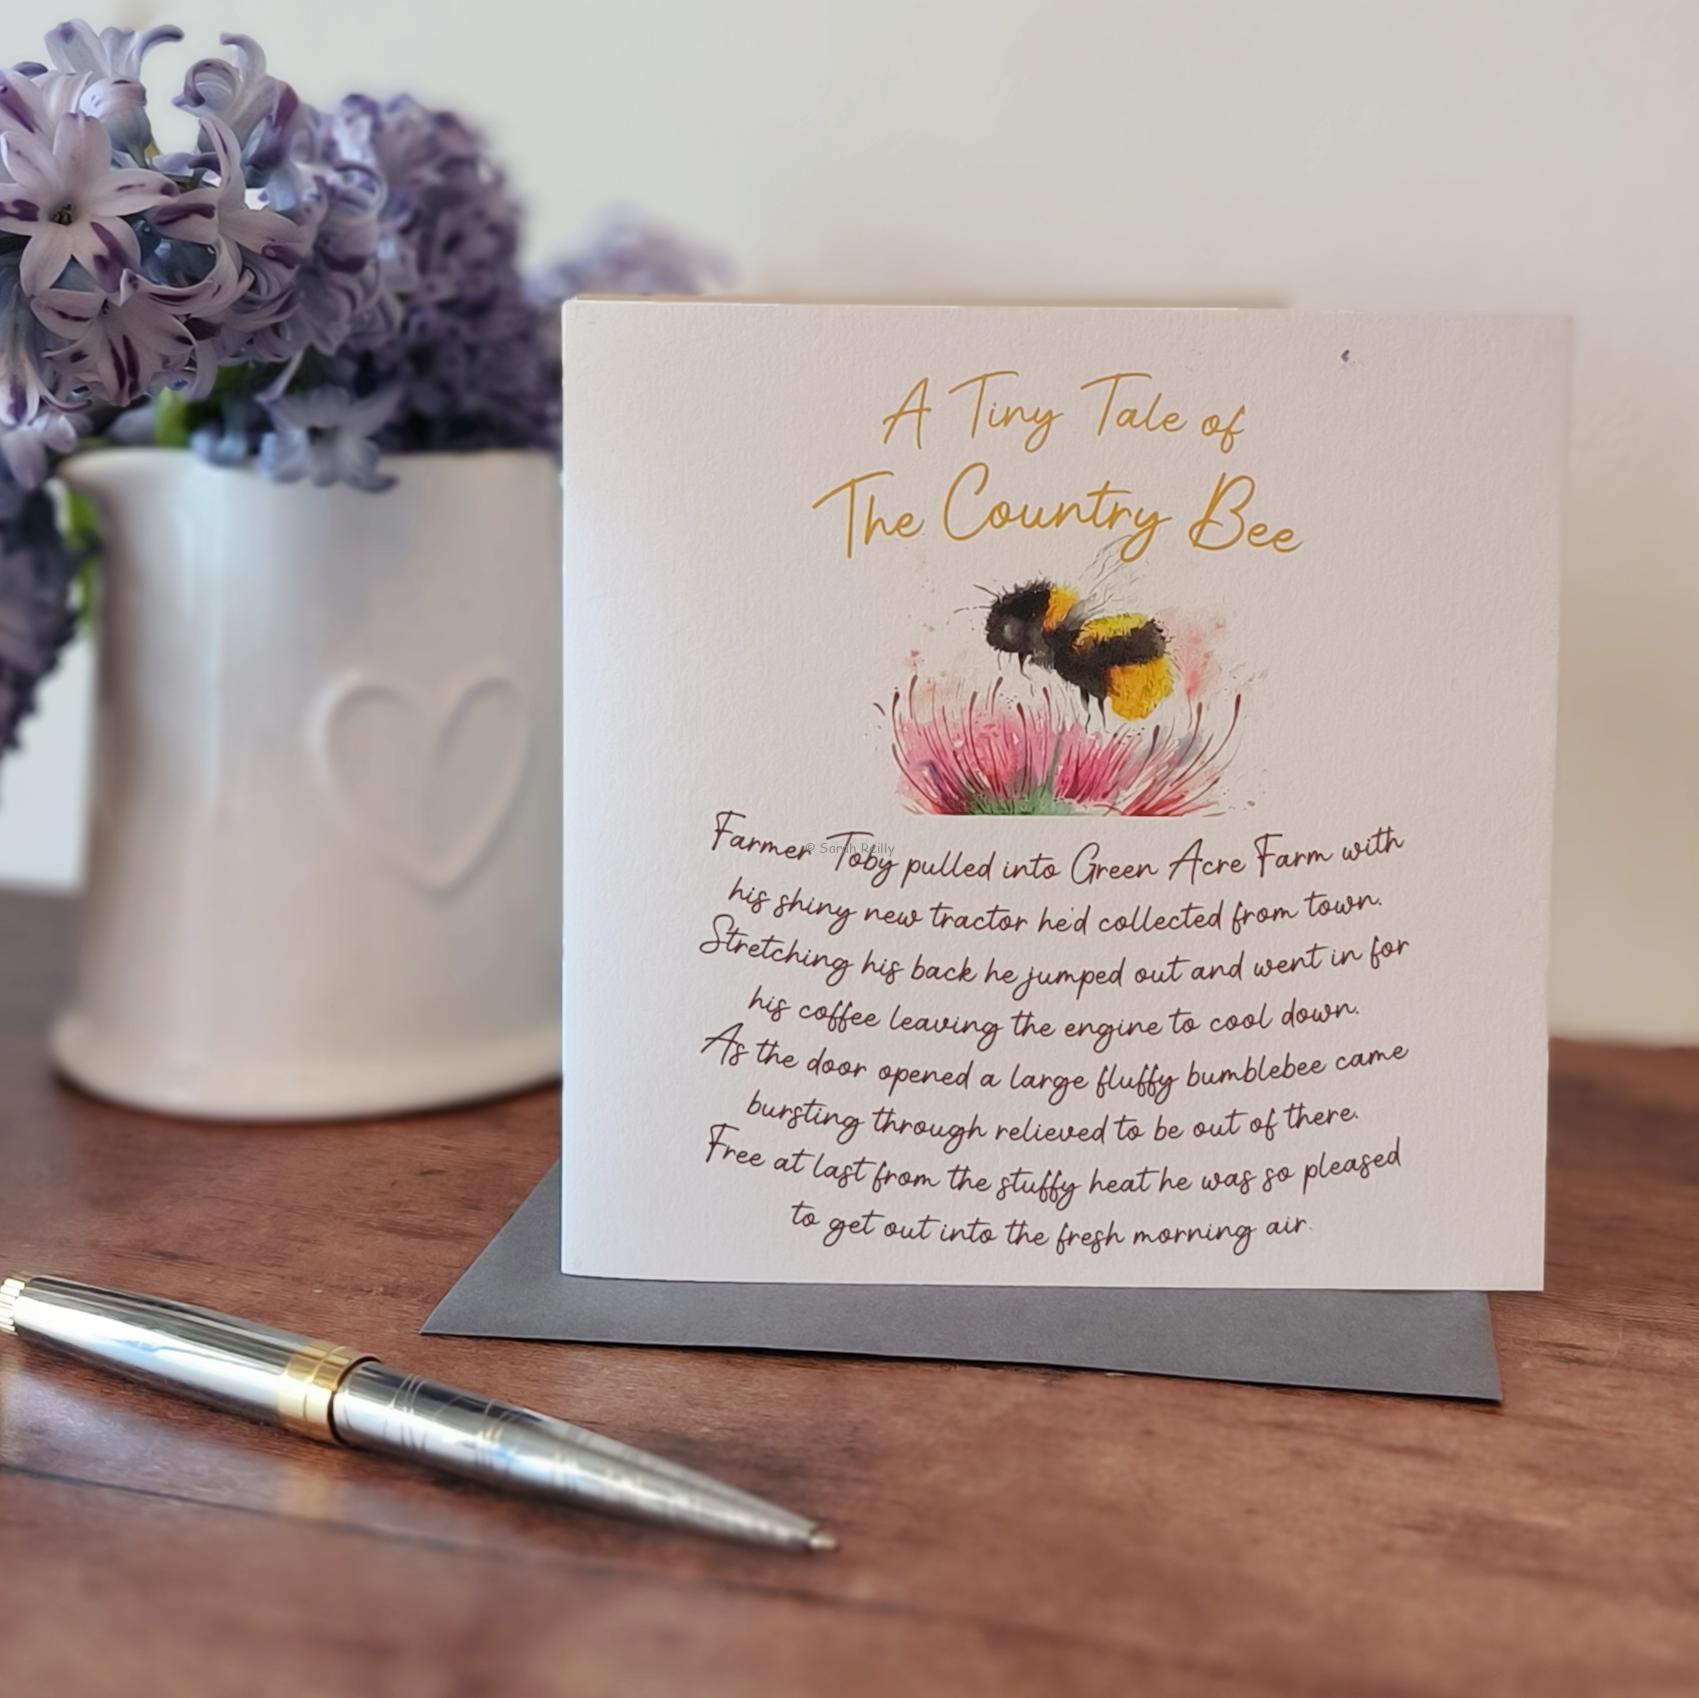 A Tiny Tale of
The Country Bee
Farmer Toby pulled into Green Acre Farm with
© Sarah Reilly
his shiny new tractor he'd collected from town.
Stretching his back he jumped out and went in for
his coffee leaving the engine to cool down.
As the door opened a large fluffy bumblebee came
bursting through relieved to be out of there.
Free at last from the stuffy heat he was so pleased
to get out into the fresh morning air.